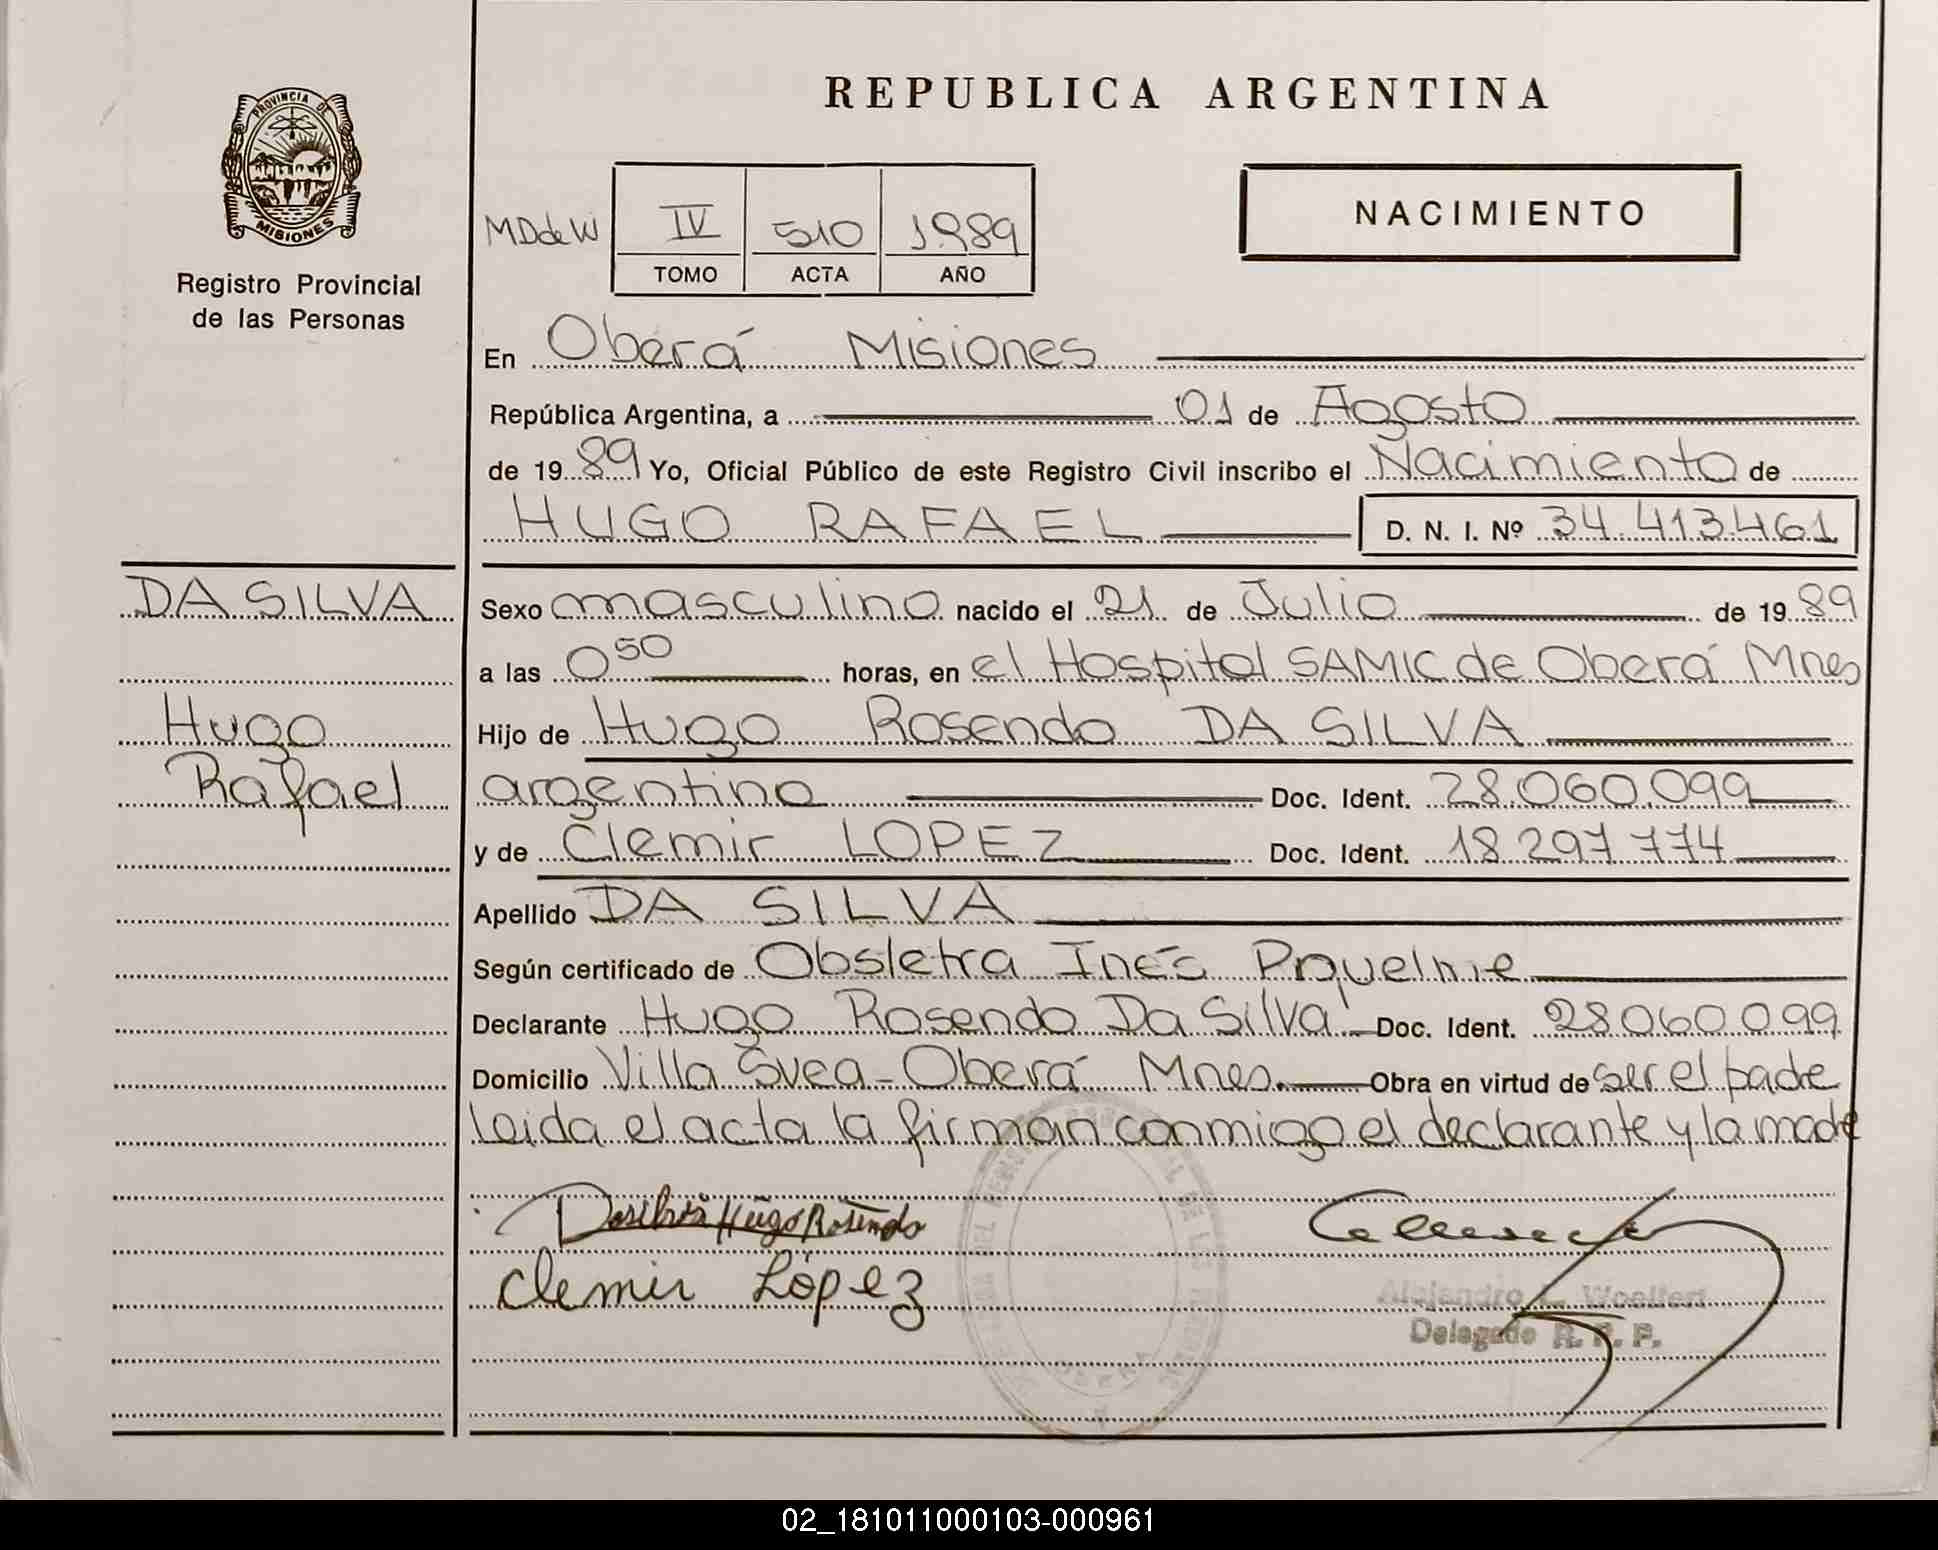 REPUBLICA ARGENTINA
PROVINCIA DE
MISIONES
Registro Provincial
de las Personas
MDdeW
IV 510 1989
TOMO ACTA AÑO
NACIMIENTO
En Oberá Misiones
República Argentina, a 01 de Agosto
de 1989 Yo, Oficial Público de este Registro Civil inscribo el Nacimiento de
HUGO RAFAEL D. N. I. Nº 34.413.461
DA SILVA
Hugo
Rafael
Sexo masculino nacido el 21 de Julio de 1989
a las 0 50 horas, en el Hospital SAMIC de Oberá Mnes
Hijo de Hugo Rosendo DA SILVA
argentino Doc. Ident. 28.060.099
y de Clemir LOPEZ Doc. Ident. 18 297 774
Apellido DA SILVA
Según certificado de Obsletra Inés
Declarante Hugo Rosendo Da Silva Doc. Ident. 28.060.099
Domicilio Villa Svea - Oberá Mnes. Obra en virtud de ser el padre
leida el acta la firman conmigo el declarante y la madre
Dasilva Hugo Rosendo
Clemir López
Alejandro L. Woelfert
Delegado R. P. P.
02_181011000103-000961